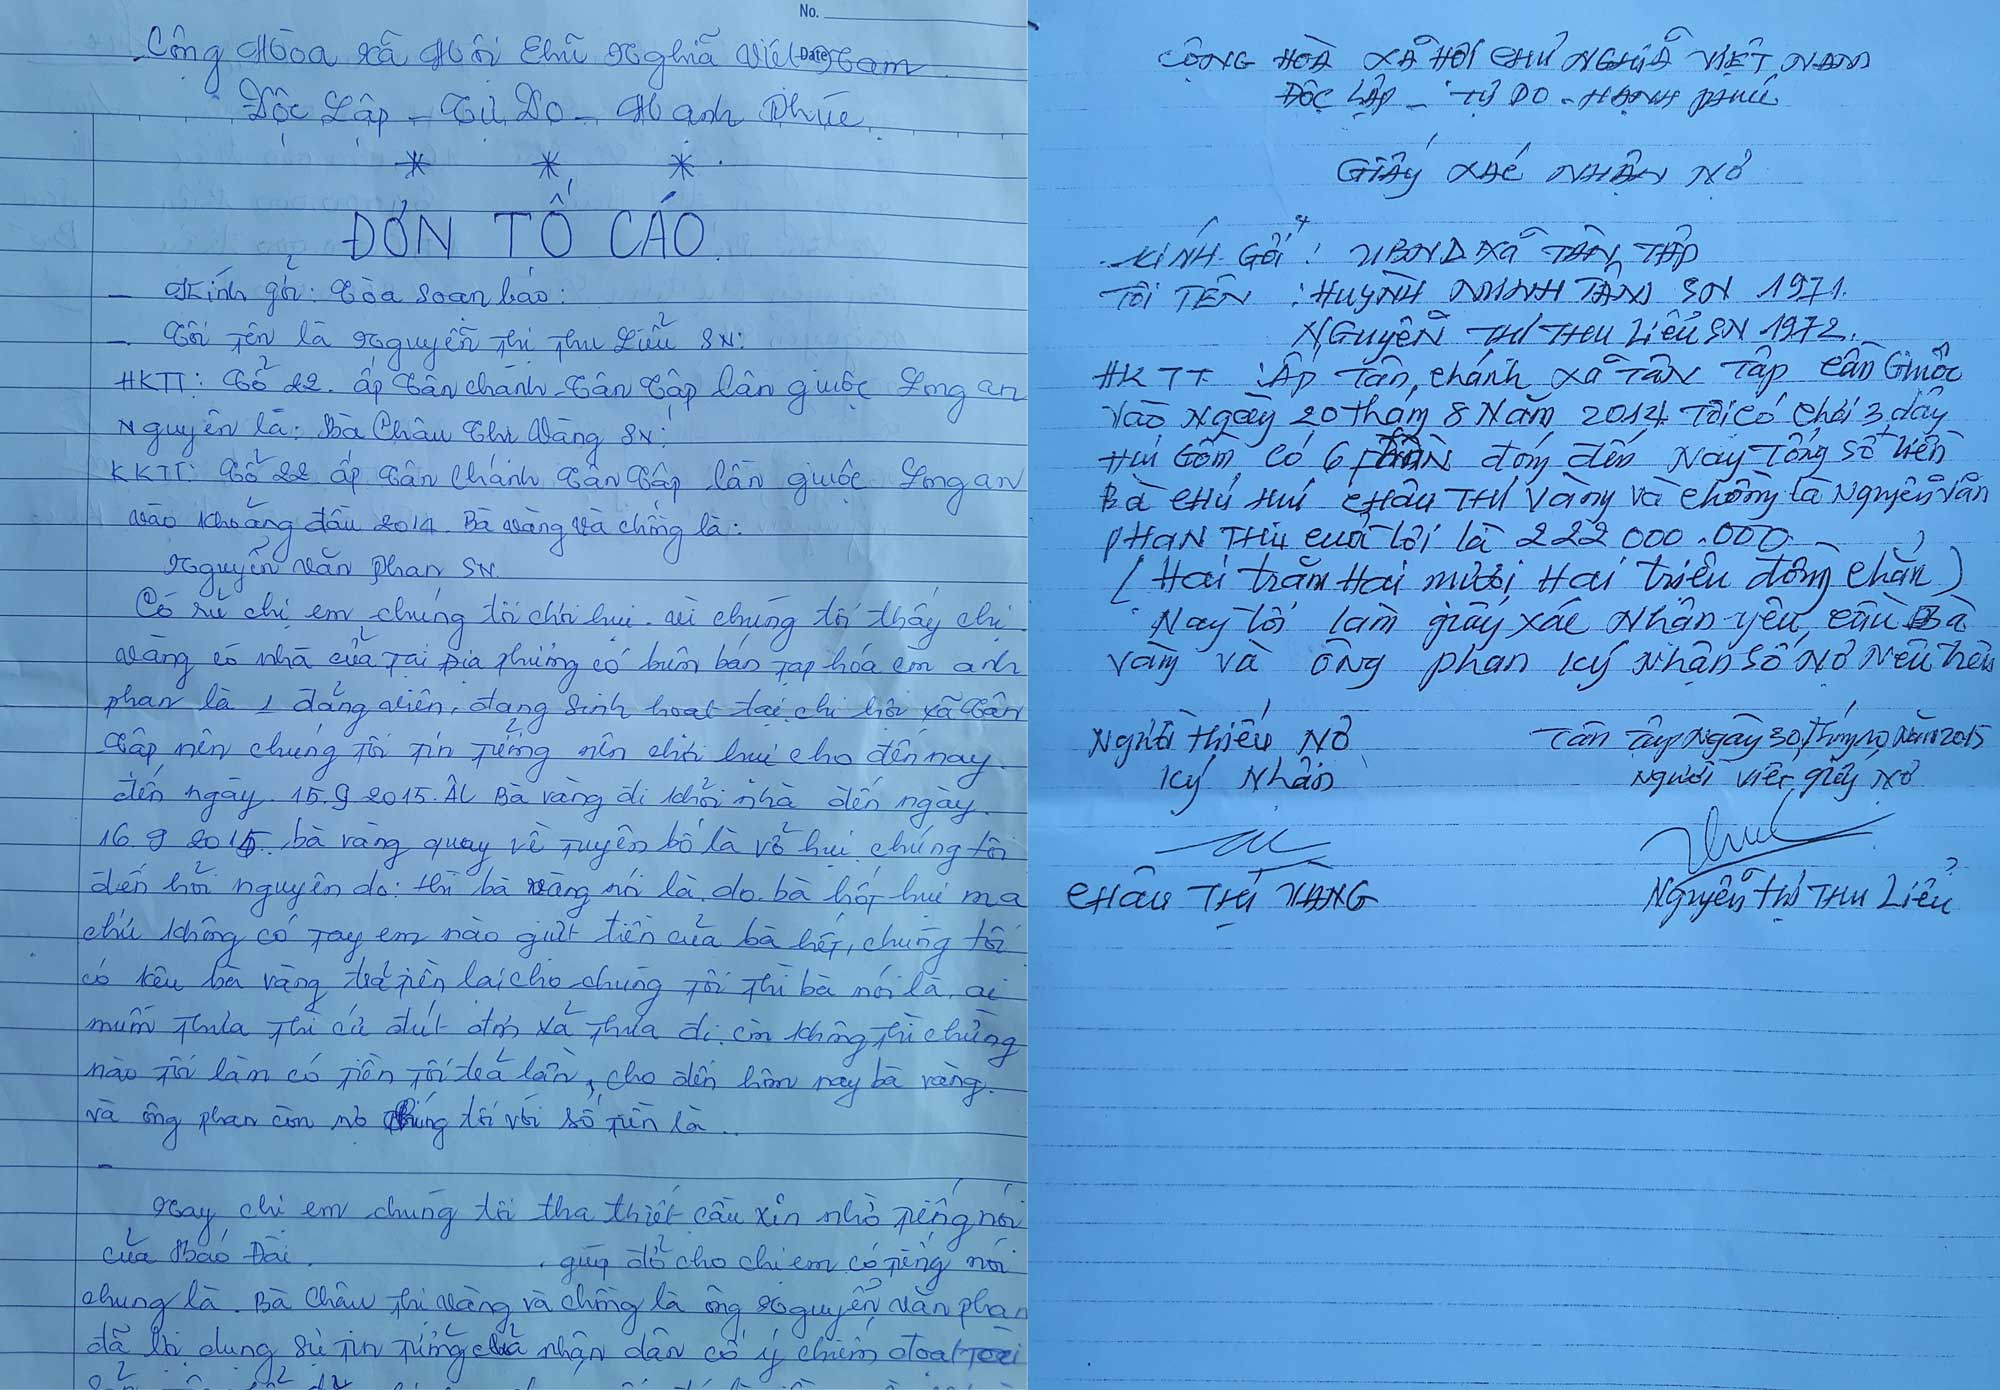 No.
Cộng Hòa Xã Hội Chủ Nghĩa Việt Nam
Date
Độc Lập - Tự Do - Hạnh Phúc
* * *
ĐƠN TỐ CÁO
- Kính gởi: Tòa soạn báo:
- Tôi tên là Nguyễn Thị Thu Liễu SN:
HKTT: Tổ 22. ấp Tân chánh Tân Tập Cần giuộc Long an
Nguyên là: Bà Châu Thị Vàng SN:
KKTT: Tổ 22 ấp Tân Chánh Tân Tập Cần giuộc Long an
vào khoảng đầu 2014. Bà Vàng và chồng là:
Nguyễn Văn phan SN
Có rủ chị em chúng tôi chơi hụi. vì chúng tôi thấy chị
Vàng có nhà cửa tại địa phương có buôn bán tạp hóa em anh
phan là 1 đảng viên, đang sinh hoạt tại chi hội xã Tân
Tập, nên chúng tôi tin tưởng nên chơi hụi cho đến nay.
đến ngày. 15.9 2015. ÂL Bà vàng đi khỏi nhà đến ngày
16 9 2015. bà vàng quay về tuyên bố là vỡ hụi. chúng tôi
đến hỏi nguyên do: thì bà vàng nói là. do. bà hốt hụi ma
chứ không có tay em nào giựt tiền của bà hết, chúng tôi
có kêu bà vàng trả tiền lại cho chúng tôi thì bà nói là, ai
muốn thưa thì cứ đút đơn xã thưa đi. còn không thì chừng
nào tôi làm có tiền tôi trả lần, cho đến hôm nay bà vàng.
và ông phan còn nợ chúng tôi với số tiền là..
-
Nay chị em chúng tôi tha thiết cầu xin nhờ tiếng nói
của Báo Đài. giúp đỡ cho chị em có tiếng nói
chung là. Bà Châu Thị Vàng và chồng là ông Nguyễn văn phan
đã lợi dụng sự tin tưởng của nhận dân cố ý chiếm đoạt
CỘNG HÒA XÃ HỘI CHỦ NGHĨA VIỆT NAM
ĐỘC LẬP - TỰ DO - HẠNH PHÚC
GIẤY XÁC NHẬN NỢ
KÍNH GỞI: UBND Xã TÂN TẬP
TÔI TÊN: HUỲNH MINH TÂN SN 1971.
NGUYỄN THỊ THU LIỄU SN 1972.
HKTT: Ấp Tân chánh xã TÂN TẬP CẦN GIUỘC
Vào Ngày 20 tháng 8 Năm 2014 Tôi có chơi 3 dây
Hụi Gồm có 6 phần đóng đến Nay Tổng số tiền
BÀ CHỦ HỤI CHÂU THỊ Vàng và chồng là Nguyễn Văn
PHAN THIẾU cuả tôi là 222 000.000.
(Hai trăm Hai mươi Hai triệu đồng chẵn)
Nay tôi làm giấy xác Nhận yêu cầu Bà
Vàng và ông phan ký Nhận số Nợ Nêu trên
Người thiếu Nợ
Ký Nhận
Tân Tập Ngày 30 tháng 10 Năm 2015
Người viết giấy Nợ
CHÂU THỊ VÀNG
NGUYỄN THỊ THU LIỄU